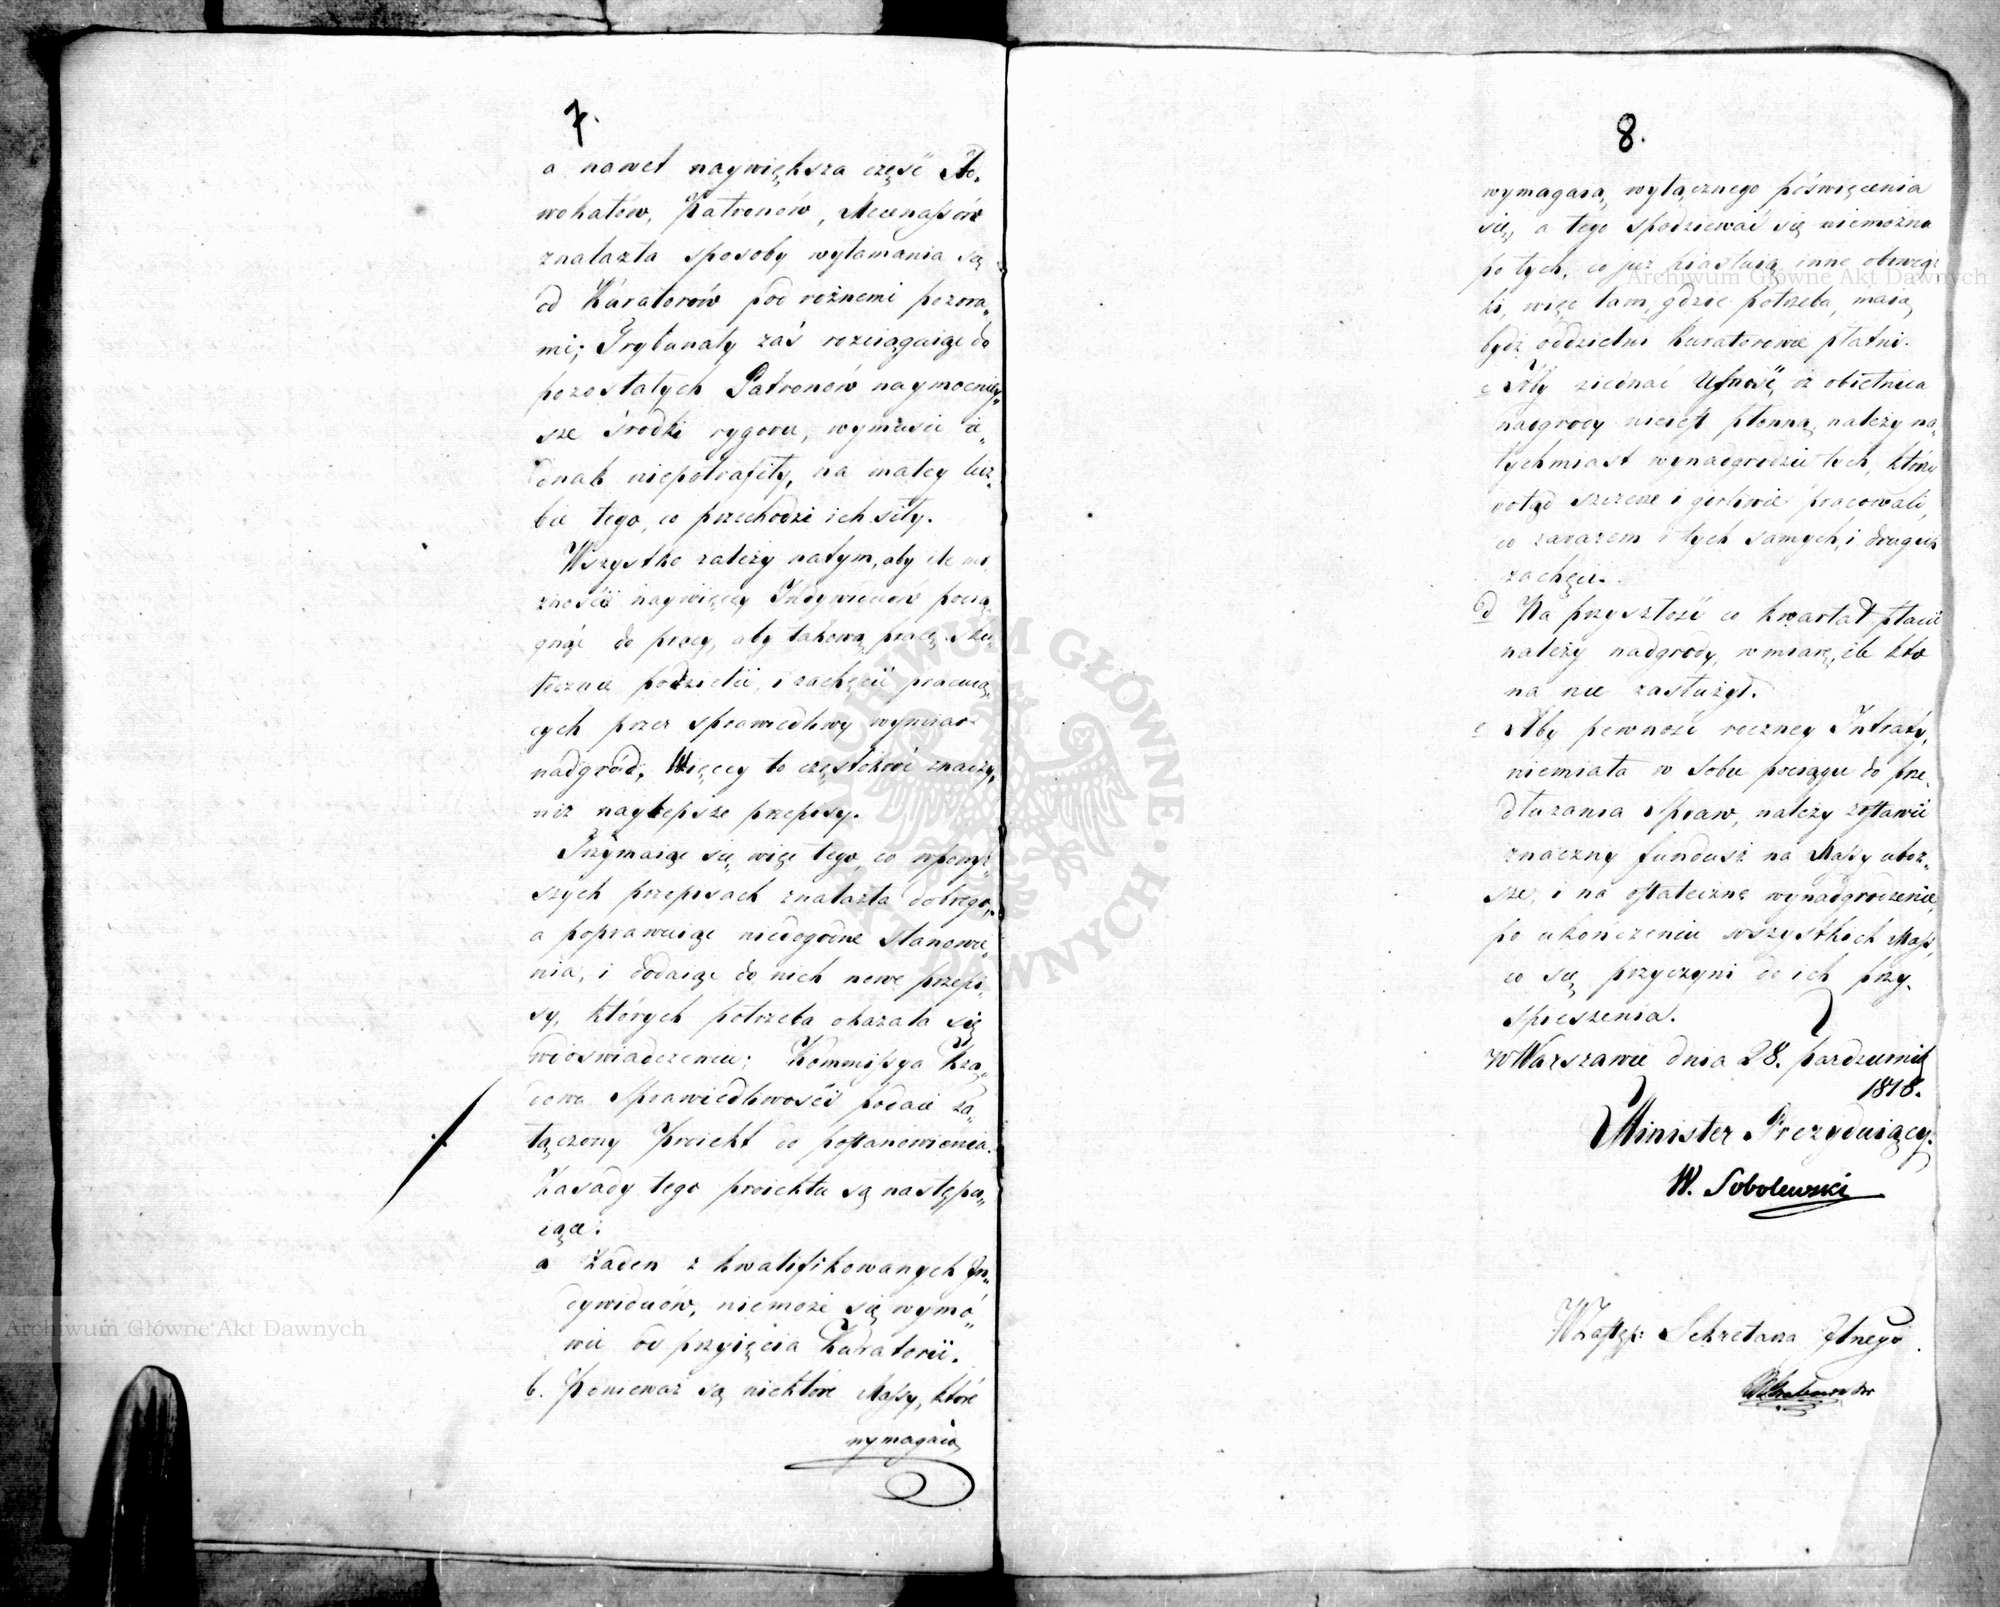 7.
a nawet naywiększa część Ad-
wokatów, Patronów, Mecenassów
znalazła sposoby wyłamania się
od Kuratorów pod rożnemi pozora-
mi; Trybunały zaś rozciągaiąc do
pozostałych Patronów naymocniey-
sze środki rygoru, wymusić ie-
dnak niepotrafiły, na małey licz-
bie tego, co przechodzi ich siły.
Wszystko zależy natym, aby ile mo-
żności naywięcey Indywiduów pocią-
gnąć do pracy, aby takową pracę sku-
tecznie podzielić, i zachęcić pracuią-
cych przez sprawiedliwy wymiar
nadgród. Więcey to częstokroć znaczy,
niż naylepsze przepisy.
Trzymaiąc się więc tego, co wpowyż-
szych przepisach znalazła dobrego,
a poprawuiąc niedogodne stanowie-
nia, i dodaiąc do nich nowe przepi-
sy, których potrzeba okazała się
wdoświadczeniu; Kommissya Rzą-
dowa Sprawiedliwości podaie za-
łączony Proiekt do postanowienia.
Zasady tego proiektu są następu-
iące:
a Żaden z kwalifikowanych In-
dywiduów, niemoże się wymó-
wić od przyięcia Kuratorii.
b. Ponieważ są niektóre Massy, które
wymagaią
8.
wymagaią wyłącznego poświęcenia
się, a tego spodziewać się niemożna
po tych, co już piastuią inne obowiąz-
ki, więc tam, gdzie potrzeba, maią
bydź oddzielni Kuratorowie płatni.
c Aby ziednać Ufność, iż obietnica
nadgrody nieiest płonną, należy na-
tychmiast wynadgrodzić tych, którzy
dotąd szczerze i gorliwie pracowali,
co zarazem i tych samych, i drugich
zachęci.
d Na przyszłość co kwartał płacić
należy nadgrody, wmiarę, ile kto
na nie zasłużył.
e Aby pewność roczney Intraty,
niemiała w sobie pociągu do prze-
dłużania spraw, należy zostawić
znaczny fundusz na Massy uboż-
sze, i na ostateczne wynadgrodzenie,
po ukończeniu wszystkich Mass,
co się przyczyni do ich przy-
spieszenia.
w Warszawie dnia 28. pazdziernika
1818.
Minister Prezyduiący.
W. Sobolewski
W Zastęp: Sekretarza Jlnego
Archiwum Główne Akt Dawnych
Archiwum Główne Akt Dawnych
ARCHIWUM GŁÓWNE AKT DAWNYCH